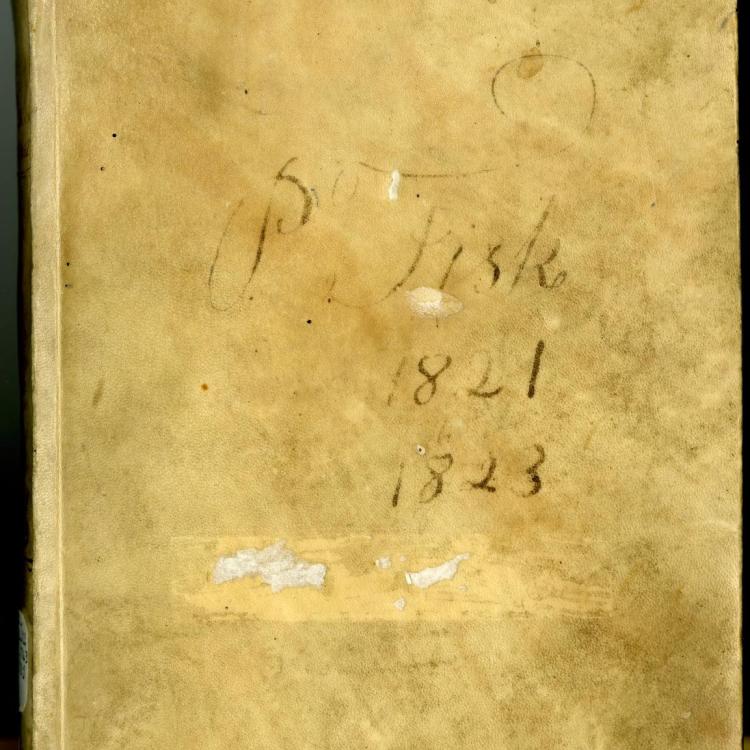 P. Fisk
1821
1823